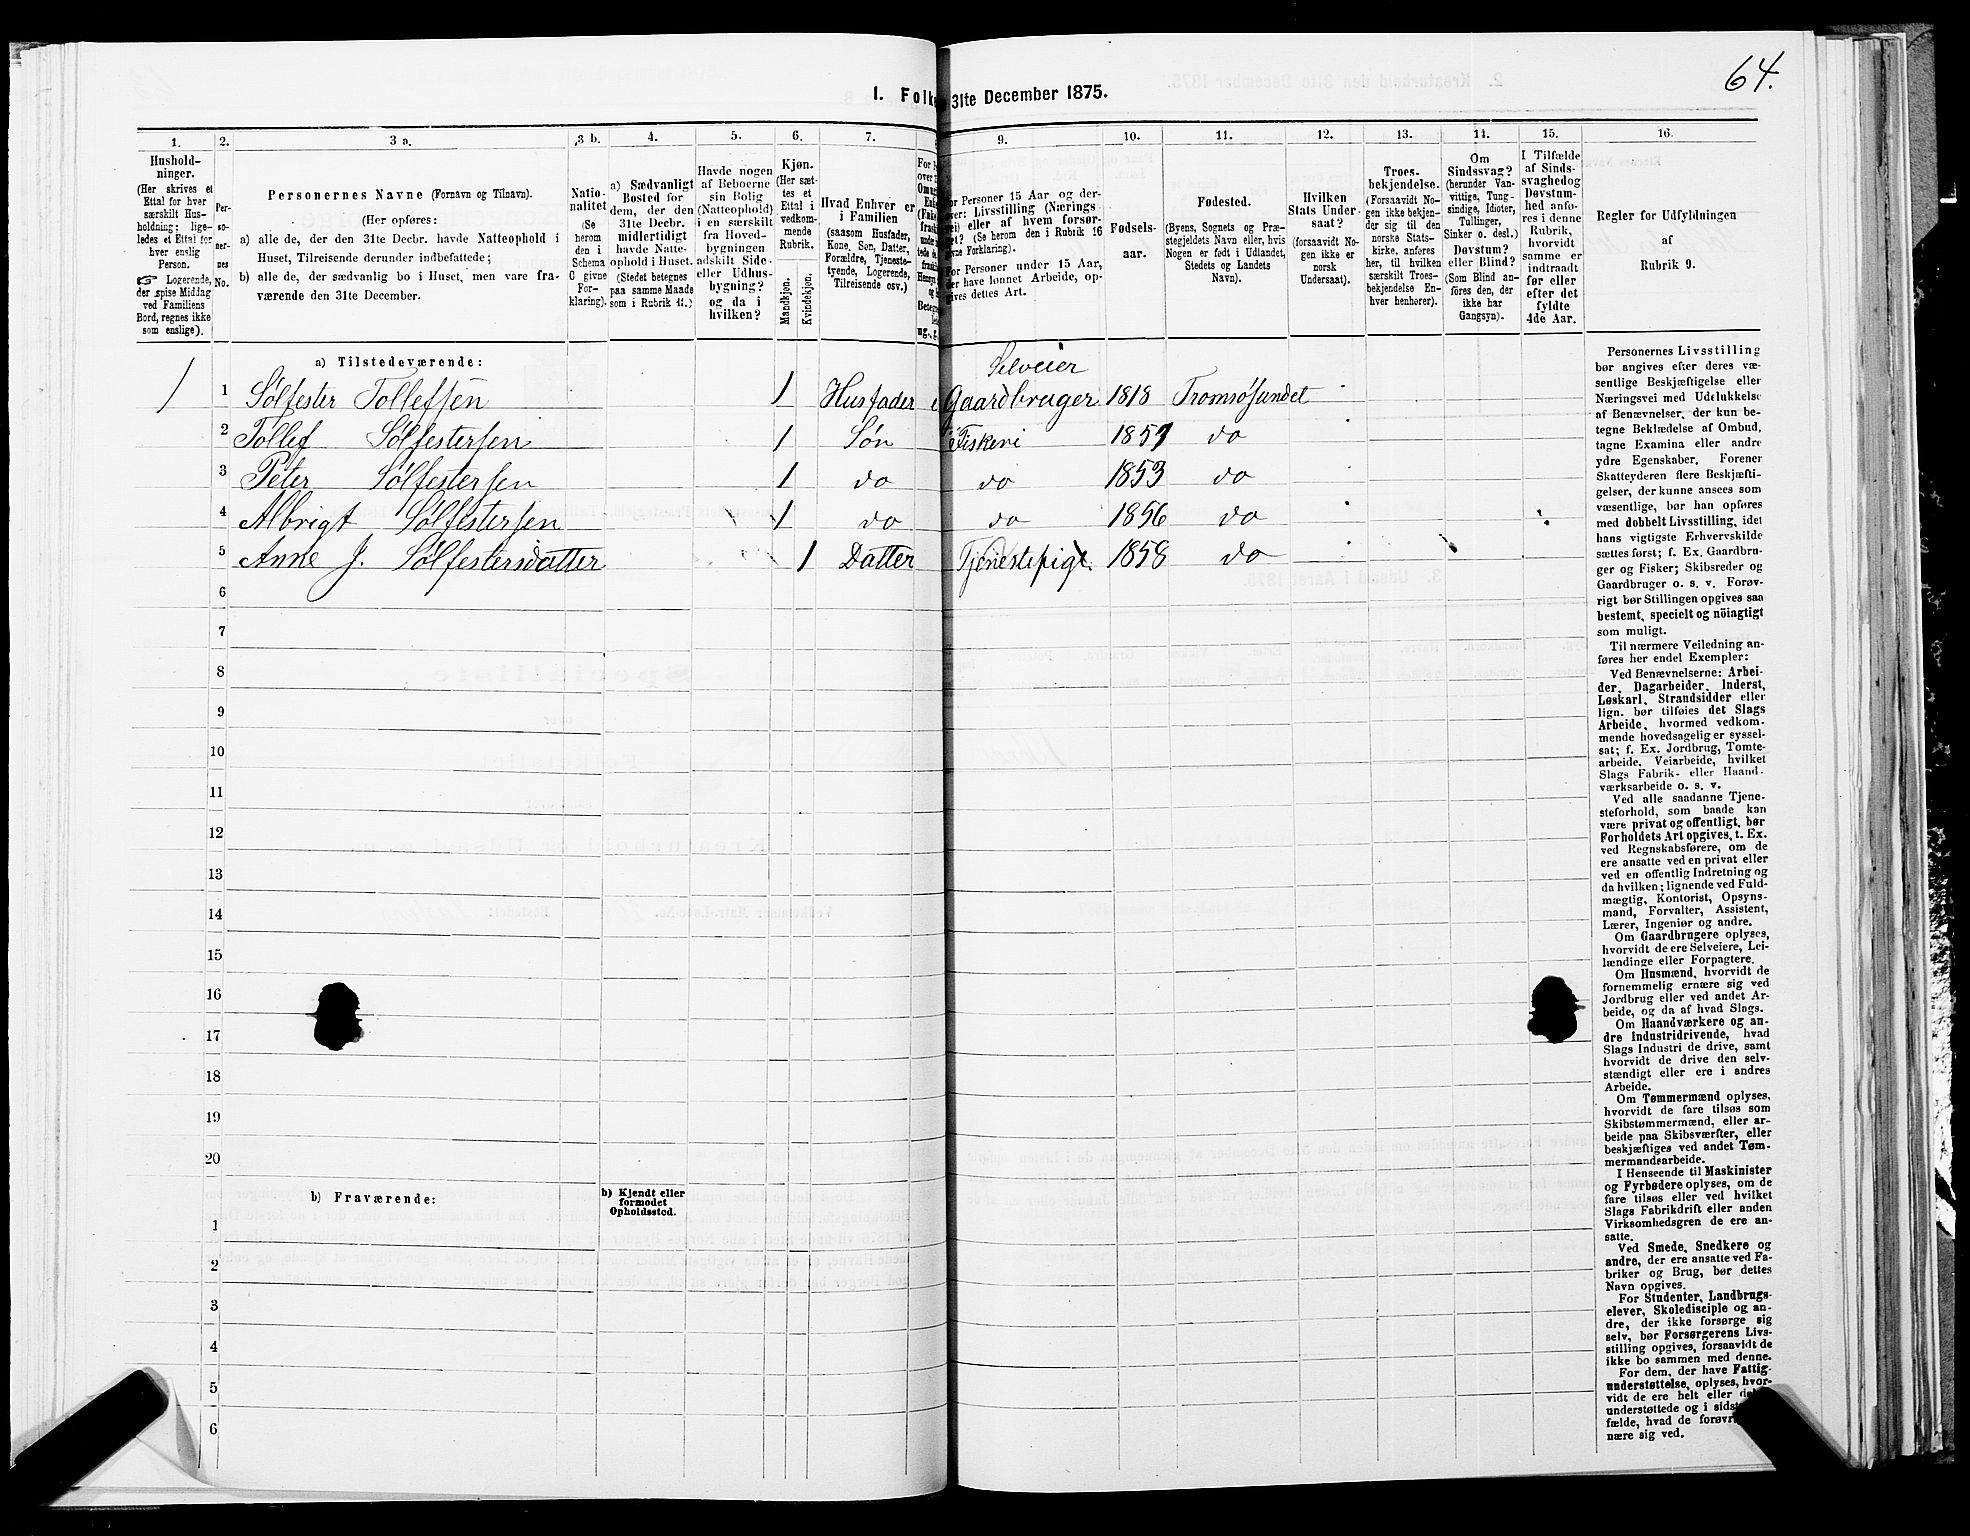 64.
I. Folke 31te December 1875.
1. 2. 3 a. 3 b. 4. 5. 6. 7. 9. 10. 11. 12. 13. 14. 15. 16.
Hushold-
ninger.
(Her skrives et
Ettal for hver
særskilt Hus-
holdning; lige-
ledes et Ettal for
hver enslig
Person.
☞ Logerende,
der spise Middag
ved Familiens
Bord, regnes ikke
som enslige).
Per-
so-
ner-
nes
No.
Personernes Navne (Fornavn og Tilnavn).
(Her opføres:
a) alle de, der den 31te Decbr. havde Natteophold i
Huset, Tilreisende derunder indbefattede;
b) alle de, der sædvanlig bo i Huset, men vare fra-
værende den 31te December.
Natio-
nalitet
(Se
herom
den i
Schema
C givne
For-
klaring).
a) Sædvanligt
Bosted for
dem, der den
31te Decbr.
midlertidigt
havde Natte-
ophold i Huset.
(Stedet betegnes
paa samme Maade
som i Rubrik 11.)
Havde nogen
af Beboerne
sin Bolig
(Natteophold)
i en særskilt
fra Hoved-
bygningen
adskilt Side-
eller Udhus-
bygning?
og da i
hvilken?
Kjøn.
(Her sæt-
tes et
Ettal i
vedkom-
mende
Rubrik.
Mandkjøn.
Kvindekjøn.
Hvad Enhver er
i Familien
(saasom Husfader,
Kone, Søn, Datter,
Forældre, Tjeneste-
tyende, Logerende,
Tilreisende osv.)
For Personer 15 Aar og der-
over: Livsstilling (Nærings
vei) eller af hvem forsør-
get? (Se herom den i Rubrik 16
givne Forklaring).
For Personer under 15 Aar,
der have lønnet Arbeide, op-
gives dettes Art.
Fødsels-
aar.
Fødested.
(Byens, Sognets og Præ-
stegjeldets Navn eller, hvis
Nogen er født i Udlandet,
Stedets og Landets
Navn).
Hvilken
Stats Under-
saat?
(forsaavidt No-
gen ikke er
norsk
Undersaat).
Troes-
bekjendelse.
(Forsaavidt No-
gen ikke bekjen-
der sig til den
norske Stats-
kirke, anføres
her, til hvilken
særskilt Troes-
bekjendelse En-
hver henhører).
Om
Sindssvag?
(herunder Van-
vittige, Tung-
sindige, Idioter,
Tullinger,
Sinker o. desl.)
Døvstum?
eller Blind?
(Som Blind an-
føres den, der
ikke har
Gangsyn).
I Tilfælde
af Sinds-
svaghedog
Døvstum-
hed anfø-
res i denne
Rubrik,
hvorvidt
samme er
indtraadt
før eller
efter det
fyldte
4de Aar.
Regler for Udfyldningen
af
Rubrik 9.
a) Tilstedeværende:
Selveier
1 1 Sølfester Tollefsen 1 Husfader Gaardbruger 1818 Tromsøsundet
2 Tollef Sølfestersen 1 Søn i Fiskeri 1851 do
3 Peter Sølfestersen 1 do do 1853 do
4 Albrigt Sølfestersen 1 do do 1856 do
5 Anne J. Sølfestersdatter 1 Datter Tjenestepige 1858 do
6
7
8
9
10
11
12
13
14
15
16
17
18
19
20
b) Fraværende:
b) Kjendt eller
formodet
Opholdssted.
1
2
3
4
5
6
Personernes Livsstilling
bør angives efter deres væ-
sentlige Beskjæftigelse eller
Næringsvei med Udelukkelse
af Benævnelser, der kun be-
tegne Beklædelse af Ombud,
tagne Examina eller andre
ydre Egenskaber. Forener
Skatteyderen flere Beskjæfti-
gelser, der kunne ansees som
væsentlige, bør han opføres
med dobbelt Livsstilling, idet
hans vigtigste Erhvervskilde
sættes først; f. Ex. Gaardbru-
ger og Fisker; Skibsreder og
Gaardbruger o. s. v. Forøv-
rigt bør Stillingen opgives saa
bestemt, specielt og nöiagtigt
som muligt.
Til nærmere Veiledning an-
føres her endel Exempler:
Ved Benævnelserne: Arbei-
der, Dagarbeider, Inderst,
Løskarl, Strandsidder eller
lign. bør tilføies det Slags
Arbeide, hvormed vedkom-
mende hovedsagelig er syssel-
sat; f. Ex. Jordbrug, Tomte-
arbeide, Veiarbeide, hvilket
Slags Fabrik- eller Haand-
værksarbeide o. s. v.
Ved alle saadanne Tjene-
steforhold, som baade kan
være privat og offentligt, bør
Forholdets Art opgives, t. Ex.
ved Regnskabsførere, om de
ere ansatte ved en privat eller
ved en offentlig Indretning og
da hvilken; lignende ved Fuld-
mægtig, Kontorist, Opsyns-
mand, Forvalter, Assistent,
Lærer, Ingeniør og andre.
Om Gaardbrugere oplyses,
hvorvidt de ere Selveiere, Lei-
lændinge eller Forpagtere.
Om Husmænd, hvorvidt de
fornemmelig ernære sig ved
Jordbrug eller ved andet Ar-
beide, og da af hvad Slags.
Om Haandværkere og an-
dre Industridrivende, hvad
Slags Industri de drive, samt
hvorvidt de drive den selv-
stændigt eller ere i andres
Arbeide.
Om Tømmermænd oplyses,
hvorvidt de fare tilsøs som
Skibstømmermænd, eller ar-
beide paa Skibsværfter, eller
beskjæftiges ved andet Tøm-
mermandsarbeide.
I Henseende til Maskinister
og Fyrbødere oplyses, om de
fare tilsøs eller ved hvilket
Slags Fabrikdrift eller anden
Virksomhedsgren de ere an-
satte.
Ved Smede, Snedkere og
andre, der ere ansatte ved Fa-
briker og Brug, bør dettes
Navn opgives.
For Studenter, Landbrugs-
elever, Skoledisciple og an-
dre, der ikke forsørge sig
selv, bør Forsørgerens Livs-
stilling opgives, forsaavidt de
ikke bo sammen med denne.
For dem, der have Fattig-
understøttelse, oplyses, hvor-
vidt de ere helt eller
understøttede og i sidst
fælde, hvad de forøvr
nære sig ved.